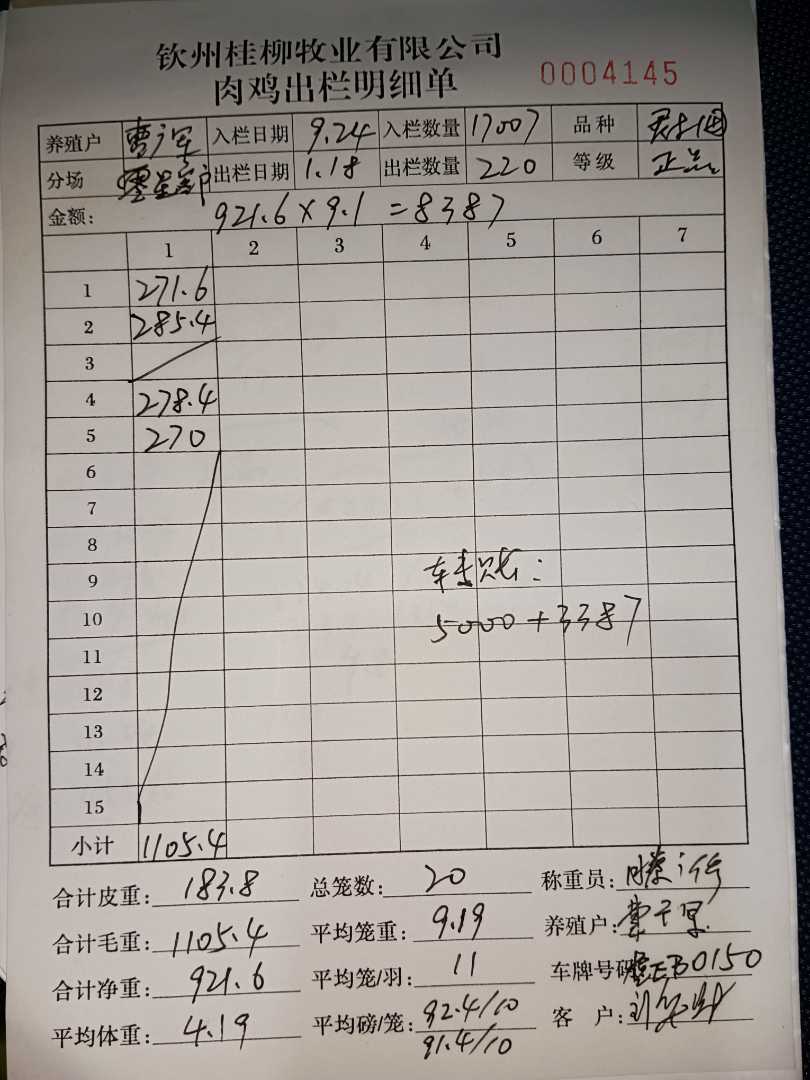 钦州桂柳牧业有限公司
肉鸡出栏明细单 0004145
养殖户 入栏日期 9.24 入栏数量 17007 品种
分场 零星客户 出栏日期 1.18 出栏数量 220 等级 正品
金额: 921.6×9.1=8387
1 2 3 4 5 6 7
1 271.6
2 285.4
3
4 278.4
5 270
6
7
8
9
10
11
12
13
14
15
5000+3387
小计 1105.4
合计皮重: 183.8 总笼数: 20 称重员:
合计毛重: 1105.4 平均笼重: 9.19 养殖户:
合计净重: 921.6 平均笼/羽: 11 车牌号码 EB0150
平均体重: 4.19 平均磅/笼: 92.4/10 客户:
91.4/10